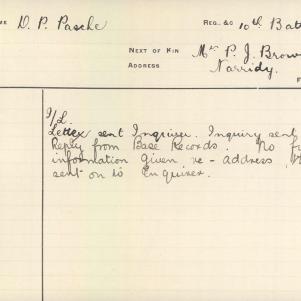 ME D. P. Pasche REG. &c 10th Batt
NEXT OF KIN Mr P. J. Brow
ADDRESS Narridy.
I/L.
Letter sent Inquirer. Inquiry sent
Reply from Base Records. No fu
information given re - address.
sent on to Enquirer.